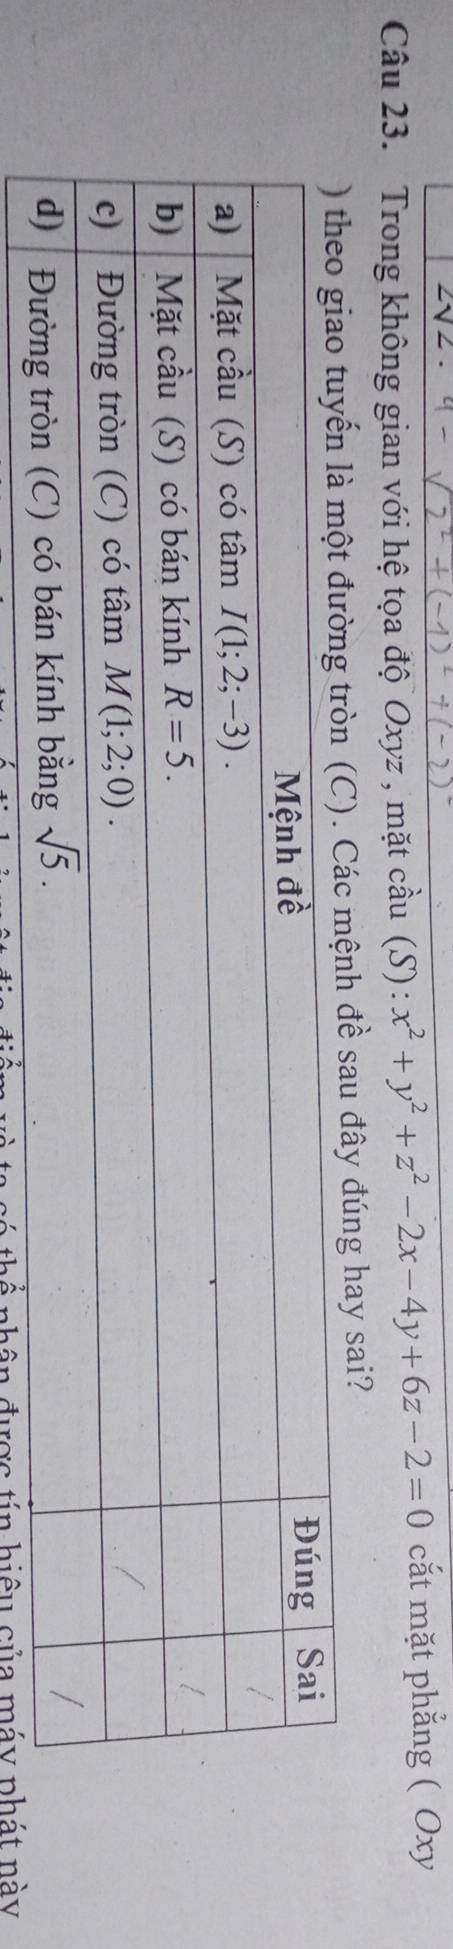 2√2. 9 - √2² + (-1)² + (-2)²
Câu 23. Trong không gian với hệ tọa độ Oxyz , mặt cầu (S) : x² + y² + z² − 2x − 4y + 6z − 2 = 0 cắt mặt phẳng ( Oxy
) theo giao tuyến là một đường tròn (C). Các mệnh đề sau đây đúng hay sai?
Mệnh đề Đúng Sai
a) Mặt cầu (S) có tâm I(1;2;−3) . /
b) Mặt cầu (S) có bán kính R = 5 . /
c) Đường tròn (C) có tâm M(1;2;0) . /
d) Đường tròn (C) có bán kính bằng √5 . /
điểm và ta có thể nhận được tín hiệu của máy phát này